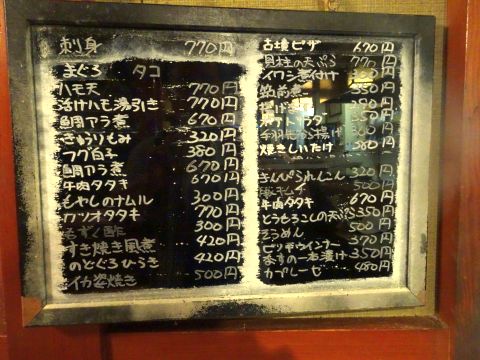 刺身 770円
まぐろ タコ
ハモ天 770円
活けハモ湯引き 770円
鯛アラ煮 670円
きゅうりもみ 320円
フグ白子 380円
鯛アラ煮 670円
牛肉タタキ 670円
もやしのナムル 300円
カツオタタキ 770円
もずく酢 300円
すき焼き風煮 420円
のどぐろひらき 420円
イカ姿焼き 500円
古墳ピザ 670円
貝柱の天ぷら 770円
イワシ煮付け
筑前煮 350円
揚げ
ポテトサラダ 350円
手羽先から揚げ 300円
焼きしいたけ 380円
きんぴられんこん 320円
豚キムチ 500円
牛肉タタキ 670円
とうもろこしの天ぷら 350円
そうめん 500円
ピリ辛ウインナー 370円
なすの一本漬け 350円
カプレーゼ 480円